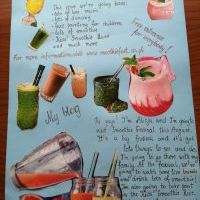 This year we're going have:
- lots of live music
- lots of dancing
- face painting for children
- lots of smoothies
- "Kiss" Smoothie Band
and much more
Free entrance
for everybody!
For more information, visit www.smoothiefest.co.uk
My blog
Hi guys! I'm Maja and I'm gonna
visit Smoothie Festival this August.
It's a big festival and it's got
lots things to see and do.
I'm going to go there with my
family. At the festival, we're
going to watch some live bands
and drink lots of smoothies!
I'm also going to take part
in the "Kiss" Smoothie Race.